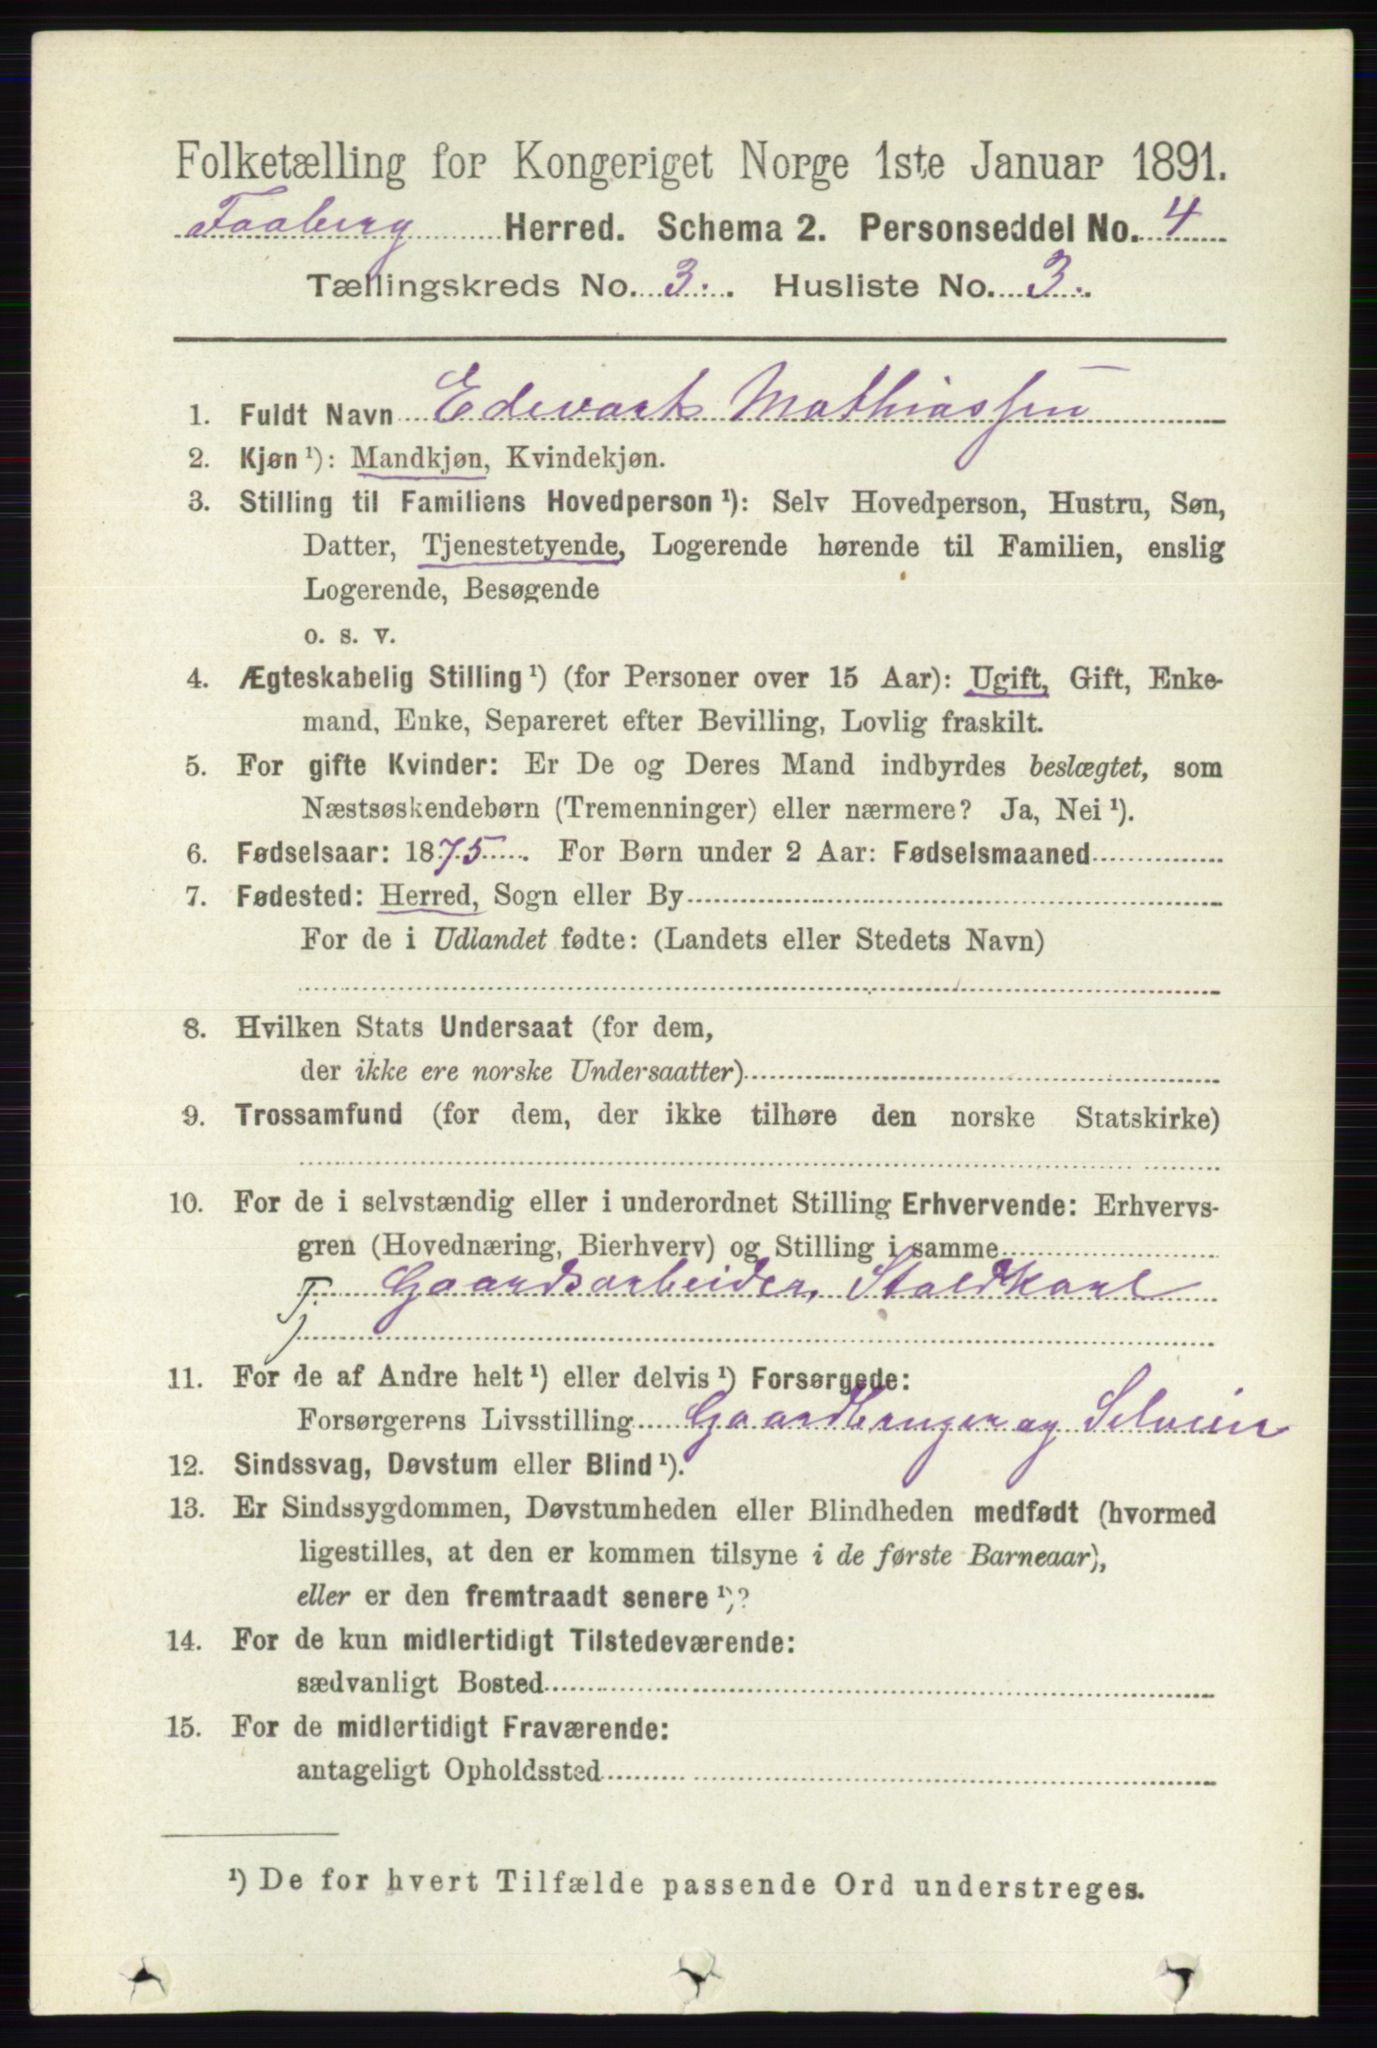 Folketælling for Kongeriget Norge 1ste Januar 1891.
Faaberg Herred. Schema 2. Personseddel No. 4
Tællingskreds No. 3. Husliste No. 3.
1. Fuldt Navn Edevart Mathiassen
2. Kjøn ¹): Mandkjøn, Kvindekjøn.
3. Stilling til Familiens Hovedperson ¹): Selv Hovedperson, Hustru, Søn,
Datter, Tjenestetyende, Logerende hørende til Familien, enslig
Logerende, Besøgende
o. s. v.
4. Ægteskabelig Stilling ¹) (for Personer over 15 Aar): Ugift, Gift, Enke-
mand, Enke, Separeret efter Bevilling, Lovlig fraskilt.
5. For gifte Kvinder: Er De og Deres Mand indbyrdes beslægtet, som
Næstsøskendebørn (Tremenninger) eller nærmere? Ja, Nei ¹).
6. Fødselsaar: 1875. For Børn under 2 Aar: Fødselsmaaned
7. Fødested: Herred, Sogn eller By
For de i Udlandet fødte: (Landets eller Stedets Navn)
8. Hvilken Stats Undersaat (for dem,
der ikke ere norske Undersaatter)
9. Trossamfund (for dem, der ikke tilhøre den norske Statskirke)
10. For de i selvstændig eller i underordnet Stilling Erhvervende: Erhvervs-
gren (Hovednæring, Bierhverv) og Stilling i samme
Tj. Gaardsarbeider, Staldkarl
11. For de af Andre helt ¹) eller delvis ¹) Forsørgede:
Forsørgerens Livsstilling Gaardbruger og Selveier
12. Sindssvag, Døvstum eller Blind ¹).
13. Er Sindssygdommen, Døvstumheden eller Blindheden medfødt (hvormed
ligestilles, at den er kommen tilsyne i de første Barneaar),
eller er den fremtraadt senere ¹)?
14. For de kun midlertidigt Tilstedeværende:
sædvanligt Bosted
15. For de midlertidigt Fraværende:
antageligt Opholdssted
¹) De for hvert Tilfælde passende Ord understreges.